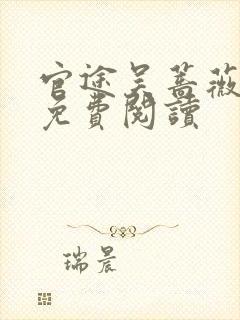 官途吴蔷薇
免費閱讀
瑞晨